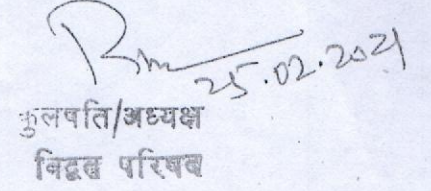 25.02.2021
कुलपति/अध्यक्ष
विद्वत परिषद